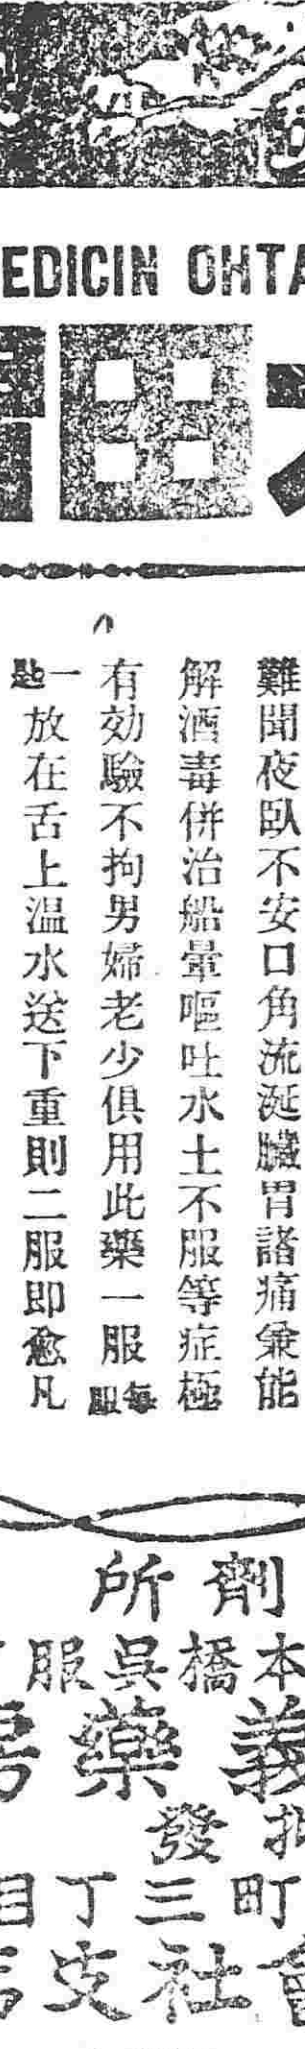 EDICIN OHTA
田
難聞夜臥不安口角流涎臟胃諸痛兼能
解酒毒併治船暈嘔吐水土不服等症極
有効驗不拘男婦老少俱用此藥一服每服
一匙放在舌上温水送下重則二服即愈凡
劑所
本橋呉服
義藥
發
町三丁目
社支